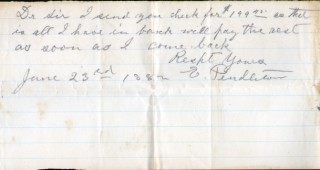 Dr sir I send you check for $199.00 as that
is all I have in bank will pay the rest
as soon as I come back
Respt Yours
June 23rd 1882 E. Pendleton